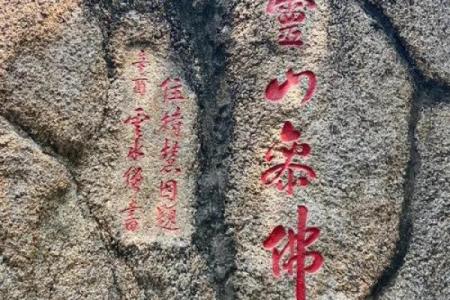 靈山參佛
住持慧題
辛酉雲水僧書